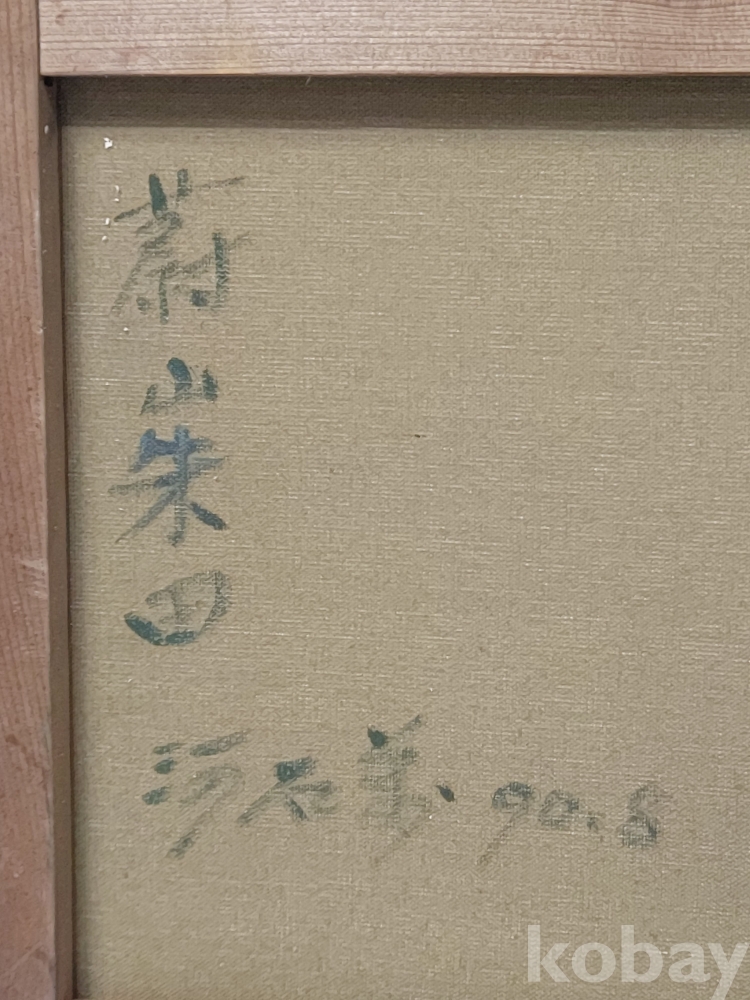 蔚山朱田
河石 90.8
kobay